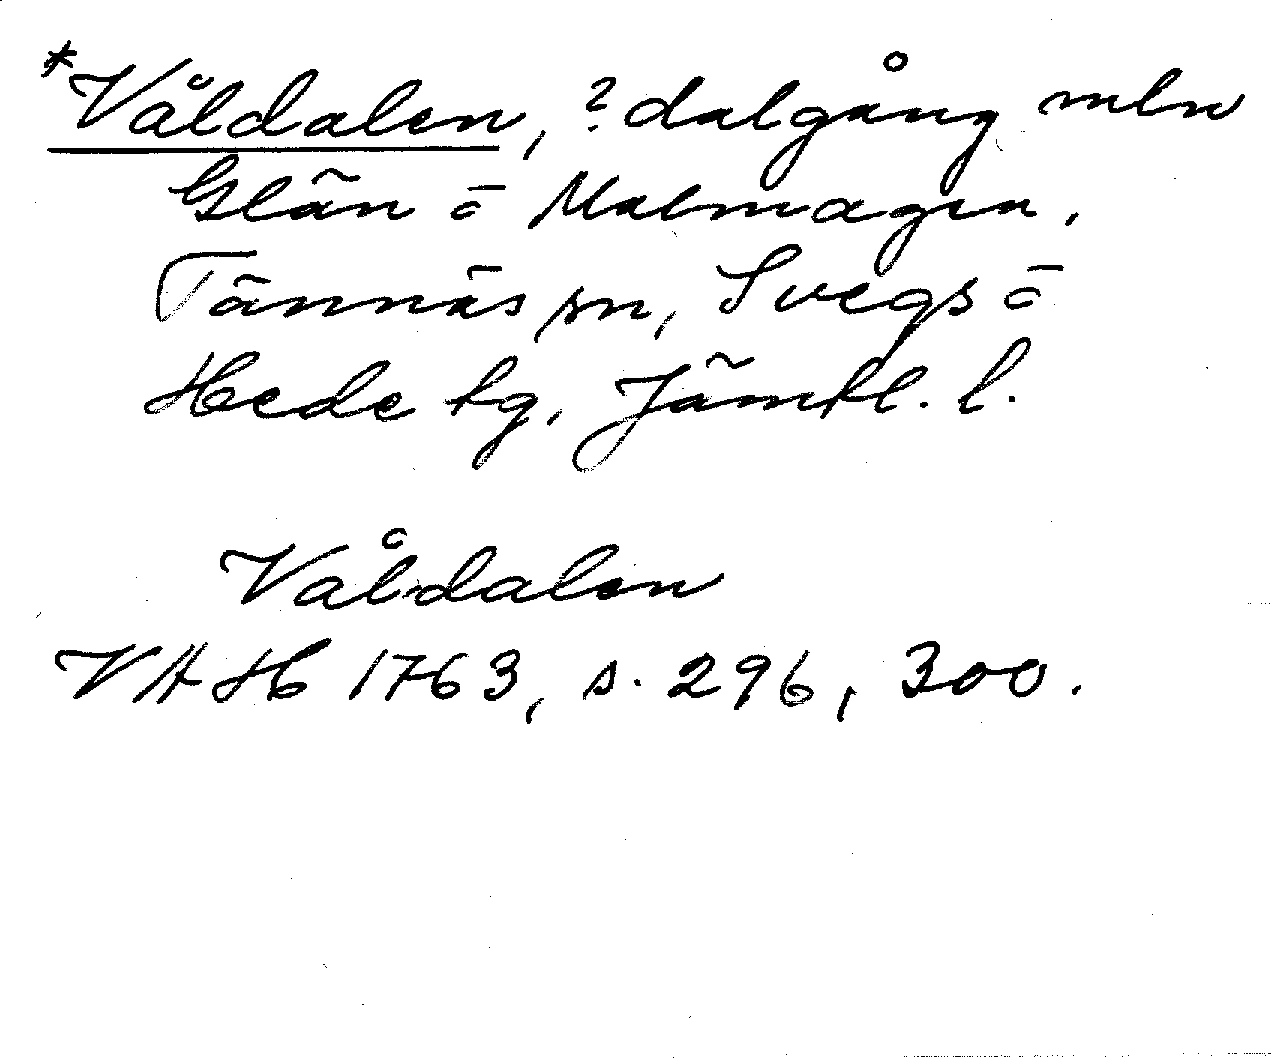 *Våldalen, ? dalgång mln
Glän o Malmagen,
Tännäs sn, Svegs o
Hede tg, Jämtl. l.
Våldalen
VAH 1763, s. 296, 300.